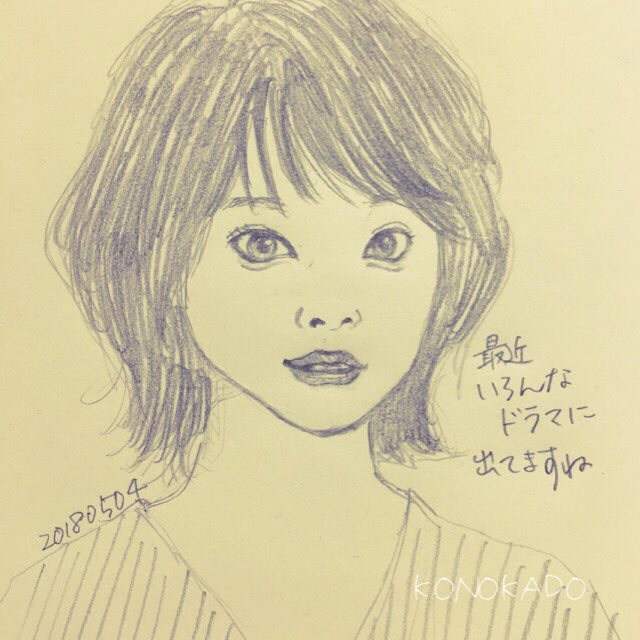 最近
いろんな
ドラマに
出てますね
20180504
KONOKADO